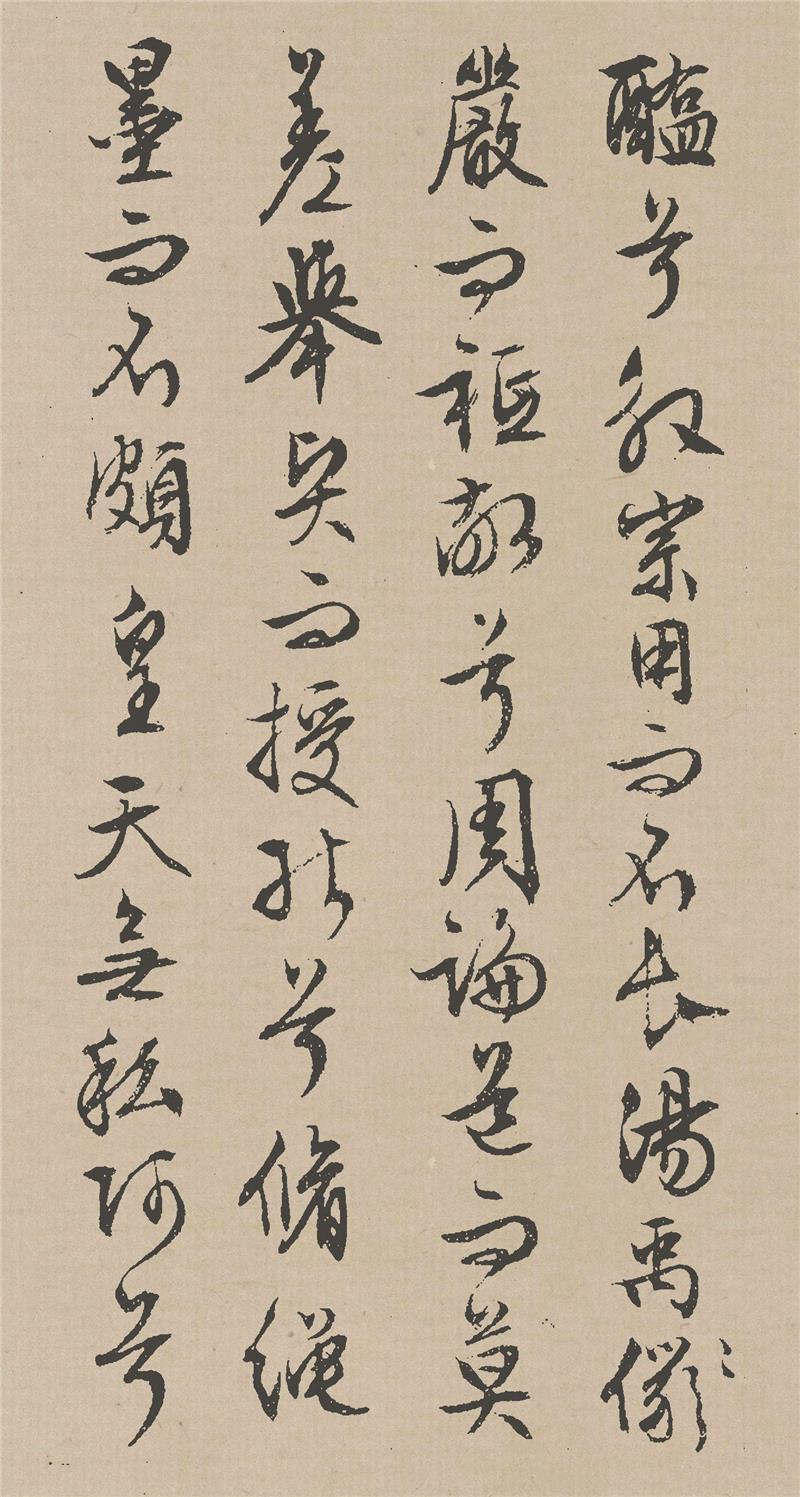 醢兮殷宗用而不長湯禹
嚴而祗敬兮周論道而莫
差舉賢而授能兮脩繩
墨而不頗皇天無私阿兮